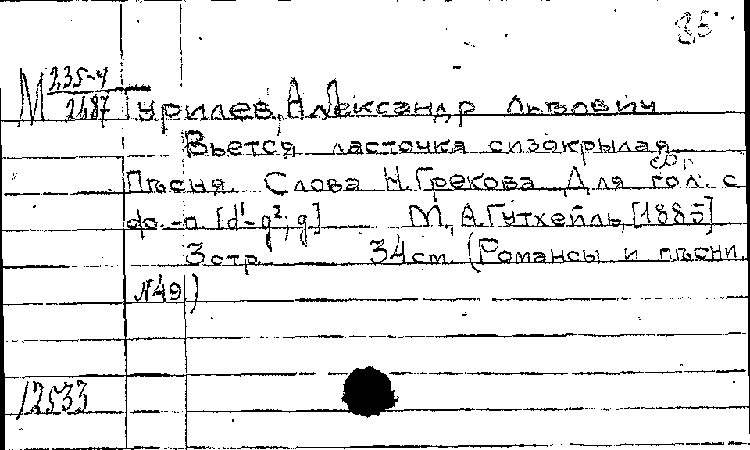 85
М 235-4/2487 Гурилев, Александр Львович
Вьется ласточка сизокрылая
Пѣсня. Слова Н. Грекова. Для гол. с
фо.-п. [d¹-g²; g.] М., А. Гутхейль, [1885]
3 стр. 34 см. (Романсы и пѣсни.
№49)
12533